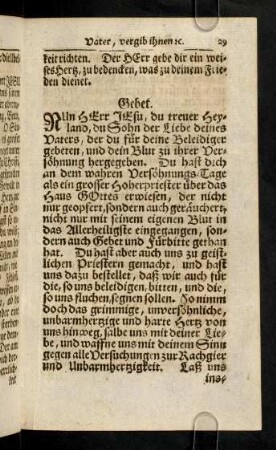 Vater, vergib ihnen ꝛc. 29
keit richten. Der HErr gebe dir ein wei-
ses Hertz, zu bedencken, was zu deinem Frie-
den dienet.
Gebet.
NUn HErr JEsu, du treuer Hey-
land, du Sohn der Liebe deines
Vaters, der du für deine Beleidiger
gebeten, und dein Blut zu ihrer Ver-
söhnung hergegeben. Du hast dich
an dem wahren Versöhnungs-Tage
als ein grosser Hoherpriester über das
Haus GOttes erwiesen, der nicht
nur geopffert, sondern auch geräuchert,
nicht nur mit seinem eigenen Blut in
das Allerheiligste eingegangen, son-
dern auch Gebet und Fürbitte gethan
hat. Du hast aber auch uns zu geist-
lichen Priestern gemacht, und hast
uns dazu bestellet, daß wir auch für
die, so uns beleidigen, bitten, und die,
so uns fluchen, segnen sollen. So nimm
doch das grimmige, unversöhnliche,
unbarmhertzige und harte Hertz von
uns hinweg, salbe uns mit deiner Lie-
be, und waffne uns mit deinem Sinn
gegen alle Versuchungen zur Rachgier
und Unbarmhertzigkeit. Laß uns
ins-